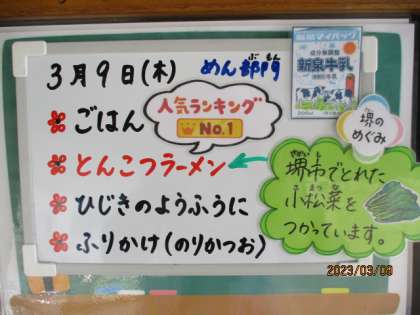 3月9日(木) めん部門
ぶもん
人気ランキング
No.1
ごはん
とんこつラーメン
ひじきのようふうに
ふりかけ(のりかつお)
成分無調整
新泉牛乳
堺の
めぐみ
堺市でとれた
小松菜を
つかっています。
2023/03/09